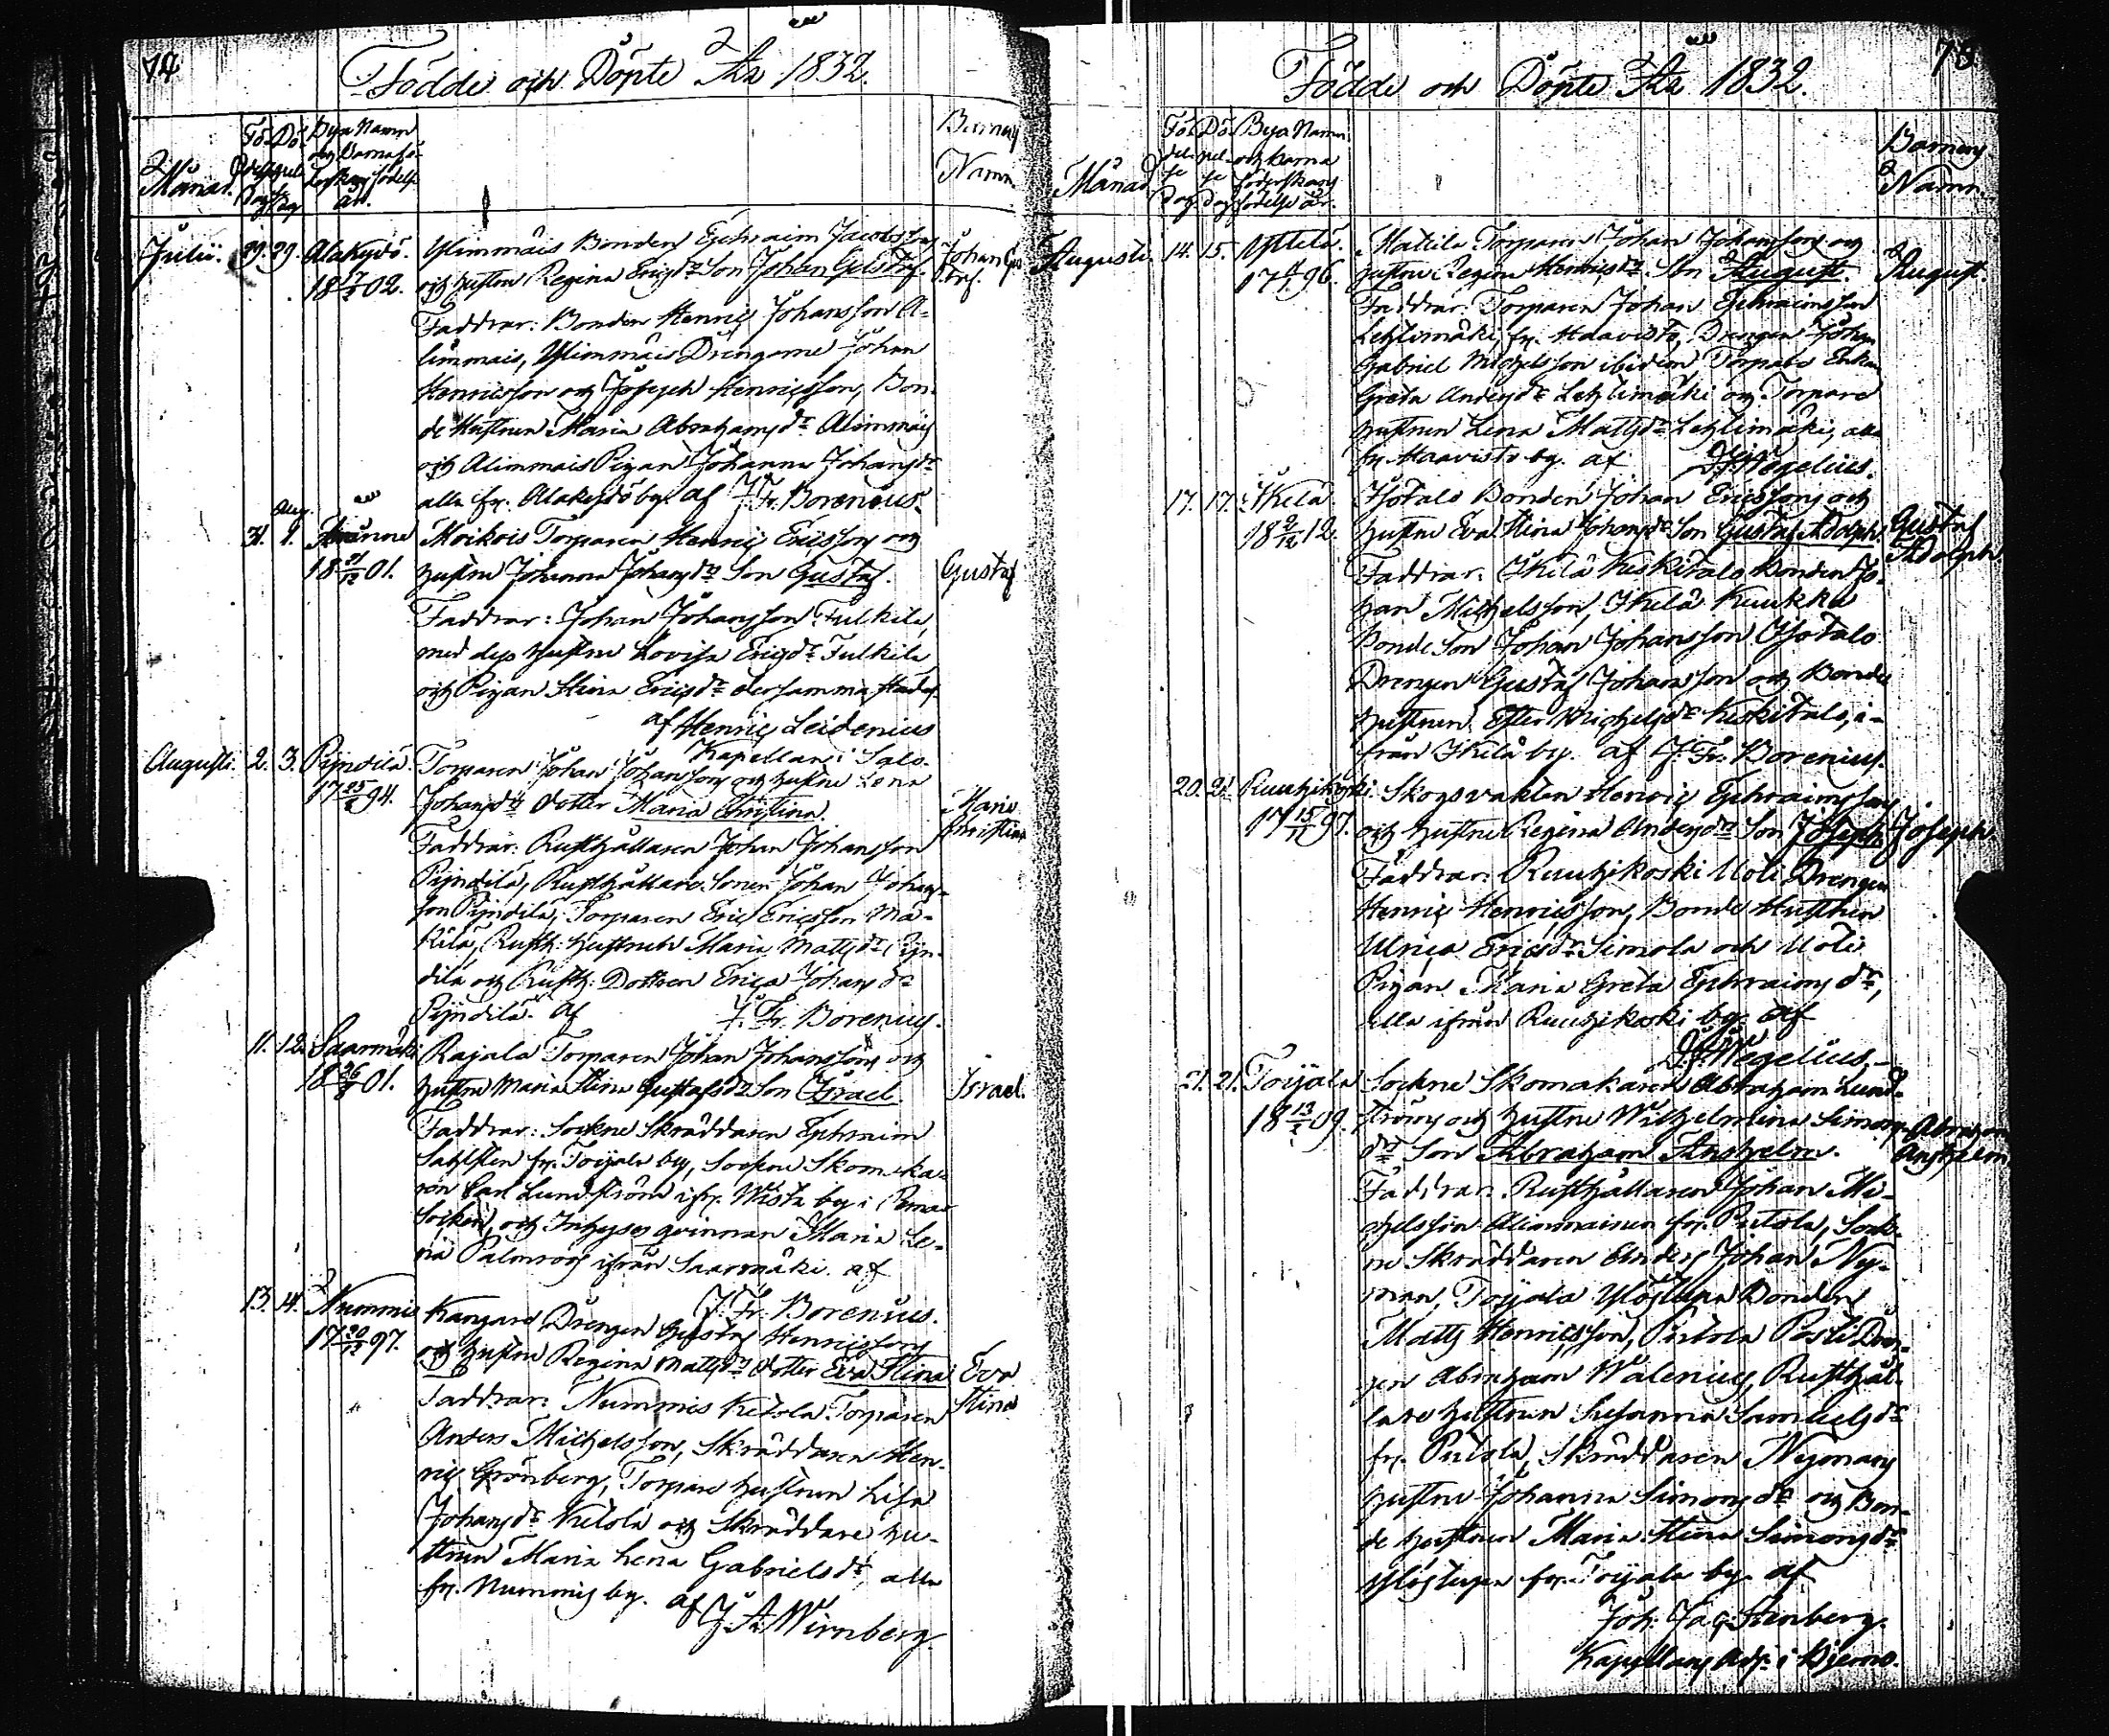 74
Födde och Döpte År 1832.
Månad.
Födelse Dag
Döpelse Dag
Bya Namn och Barnaföderskans födelse år.
Barnens
Namn.
Julii. 29. 29. Alakydö. Ylimmäis Bonden Ephraim Jacobssons
18 02. och hustrun Regina Ericsdrs Son Johan Gustaf. Johan Gustaf.
Faddrar: Bonden Henric Johansson A-
limmais, Ylimmäis Drengarne Johan
Henricsson och Joseph Henricsson, Bon-
de Hustrun Maria Abrahamsdr Alimmäis
och Alimmais Pigan Johanna Johansdr
alla fr. Alakydö by. af J. Fr. Borenius.
Aug.
31. 1. Moikois Torparen Henric Ericssons och
18 21/12 01. hustru Johanna Johansdrs Son Gustaf. Gustaf
Faddrar: Johan Johansson Fulkila,
med dess hustru Lovisa Ericsdr Fulkila,
och Pigan Stina Ericsdr dersammastädes.
af Henric Leidenius
Kapellan i Salo.
Augusti. 2. 3. Pyndilä. Torparen Johan Johanssons och hustru Lena
17 94. Johansdrs dotter Maria Christina. Maria Christina
Faddrar: Rusthållaren Johan Johansson
Pyndilä, Rusthållare Sonen Johan Johans-
son Pyndilä, Torparen Eric Ericsson Mä-
kilä, Rusth: hustrun Maria Mattsdr Pyn-
dilä och Rusth: Dottren Erica Johansdr
Pyndilä. af J. Fr. Borenius.
11. 12. Saarmäki Rajala Torparen Johan Johanssons och
18 26 01. hustru Maria Stina Gustafsdrs Son Israel. Israel.
Faddrar: Sockne Skräddaren Ephraim
Sahlsten fr. Toijala by, Sockne Skomaka-
ren Carl Lundström ifr. Wista by i Pemar
Socken, och Inhyses qvinnan Maria Le-
na Palmroos ifrån Saarmäki. af
J. Fr. Borenius.
13. 14. Nummis Kangars Drengen Gustaf Henricssons
17 20/12 97. och hustru Regina Mattsdrs dotter Eva Stina Eva Stina
Faddrar: Nummis Ketola Torparen
Anders Michelsson, Skräddaren Hen-
ric Grönberg, Torpare hustrun Lisa
Johansdr Ketola och Skräddare hu-
strun Maria Lena Gabrielsdr, alla
fr. Nummis by. af J. A. Wirnberg.
75
Födde och Döpte År 1832.
Månad
Födelse Dag.
Döpelse Dag
Bya Namn och Barna föderskans födelse år.
Barnens
Namn
Augusti. 14. 15. Yttelä. Mattila Torparen Johan Johanssons och
17 96. hustru Regina Henricsdrs Son August. August.
Faddrar: Torparen Johan Ephraimsson
Lehtimäki, fr. Haavisto, Drengen Johan
Gabriel Michelsson ibidem, Torpare Enkan
Greta Andersdr Lehtimäki och Torpare
hustrun Lena Mattsdr Lehtimäki, alla
fr. Haavisto by. af Wegelius.
17. 17. Ikelä Isotalo Bonden Johan Ericssons och
18 9/12 12. hustru Eva Stina Johansdrs Son Gustaf Adolph. Gustaf Adolph.
Faddrar: Ikelä Keskitalo Bonden Jo-
han Michelsson, Ikelä Kuukka
Bonde Son Johan Johansson Isotalo
Drengen Gustaf Johansson och Bonde
hustrun Ester Michelsdr Keskitalo, i-
från Ikelä by. af J. Fr. Borenius.
20. 21. Ruuhikoski. Skogsvakten Henric Ephraimssons
17 15/11 97. och hustru Regina Andersdrs Son Joseph Joseph.
Faddrar: Ruuhikoski Uoti Drengen
Henric Henricsson, Bonde Hustrun
Ulrica Ericsdr Simola och Uoti
Pigan Maria Greta Ephraimsdr,
alla ifrån Ruuhikoski by. af
Wegelius.
21. 21. Toijala Sockne Skomakaren Abraham Lund-
18 13 09. ströms och hustru Wilhelmina Simons-
drs Son Abraham Anshelm. Abraham Anshelm
Faddrar: Rusthållaren Johan Mi-
chelsson Alimmainen fr. Pitola, Sock-
ne Skräddaren Anders Johan Ny-
man, Toijala Bonden
Matts Henricsson, Pitola Posti Dren-
gen Abraham Walenius, Rusthål-
lare hustrun Susanna Samuelsdr
fr. Pitola, Skräddaren Nymans
hustru Johanna Simonsdr och Bon-
de hustrun Maria Stina Simonsdr
fr. Toijala by. af
Joh: Jac: Stenberg.
Kapellans Adj: i Bjerno.